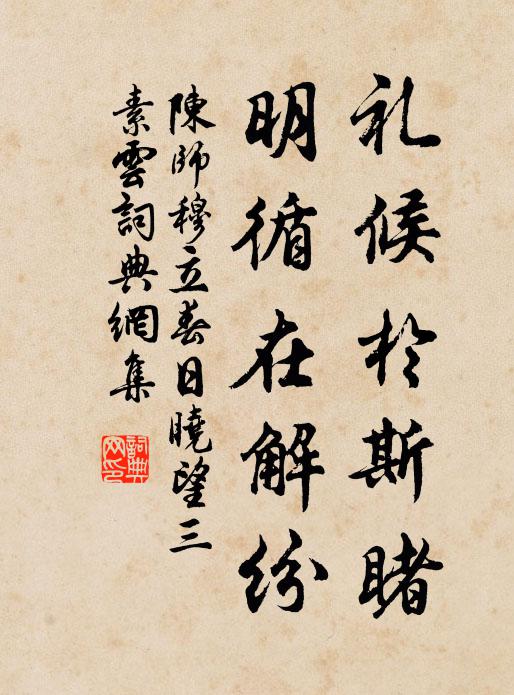 礼候於斯睹
明循在解纷
陳師穆立春日曉望三
素雲詞典網集
詞典網印